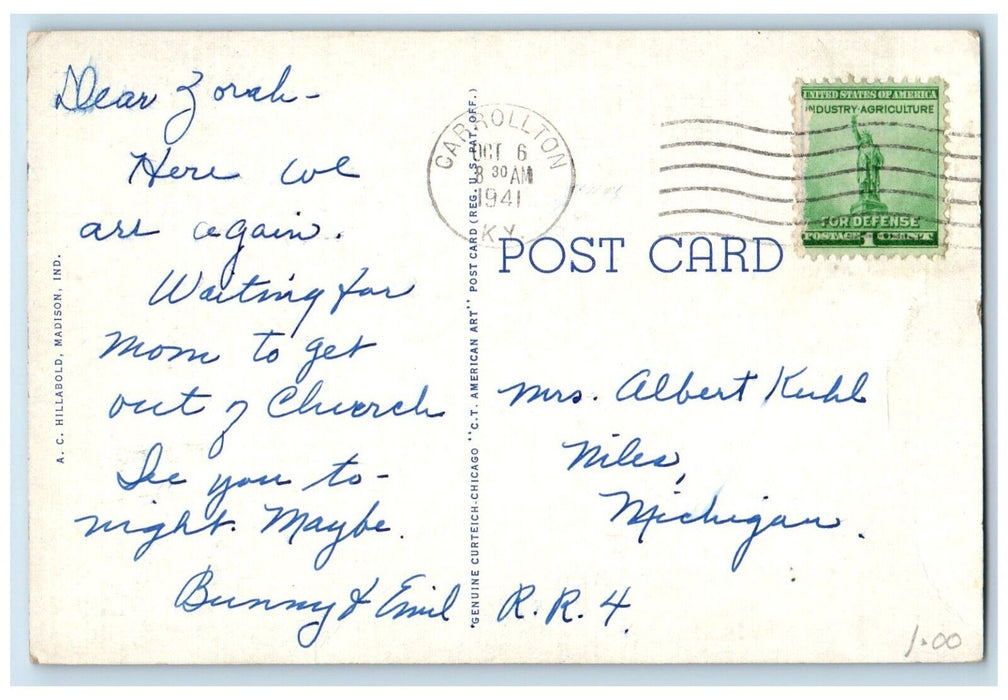 Dear Zorah-
Here we
are again.
Waiting for
Mom to get
out of Church
See you to-
night. Maybe.
Bunny & Emil
A. C. HILLABOLD, MADISON, IND.
"GENUINE CURTEICH-CHICAGO "C.T. AMERICAN ART" POST CARD (REG. U.S. PAT. OFF.)
CARROLLTON
OCT 6
8 30 AM
1941
KY.
UNITED STATES OF AMERICA
INDUSTRY-AGRICULTURE
FOR DEFENSE
POSTAGE 1 CENT
POST CARD
Mrs. Albert Kuhl
Niles,
Michigan.
R.R. 4.
1.00